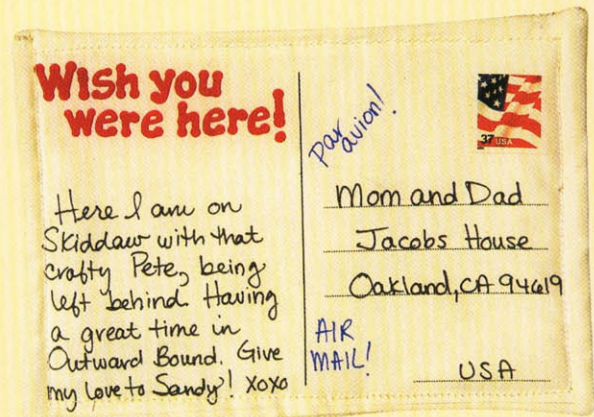 Wish you
were here!
Here I am on
Skiddaw with that
crafty Pete, being
left behind. Having
a great time in
Outward Bound. Give
my love to Sandy! xoxo
Par avion!
37 USA
Mom and Dad
Jacobs House
Oakland, CA 94619
AIR
MAIL!
USA